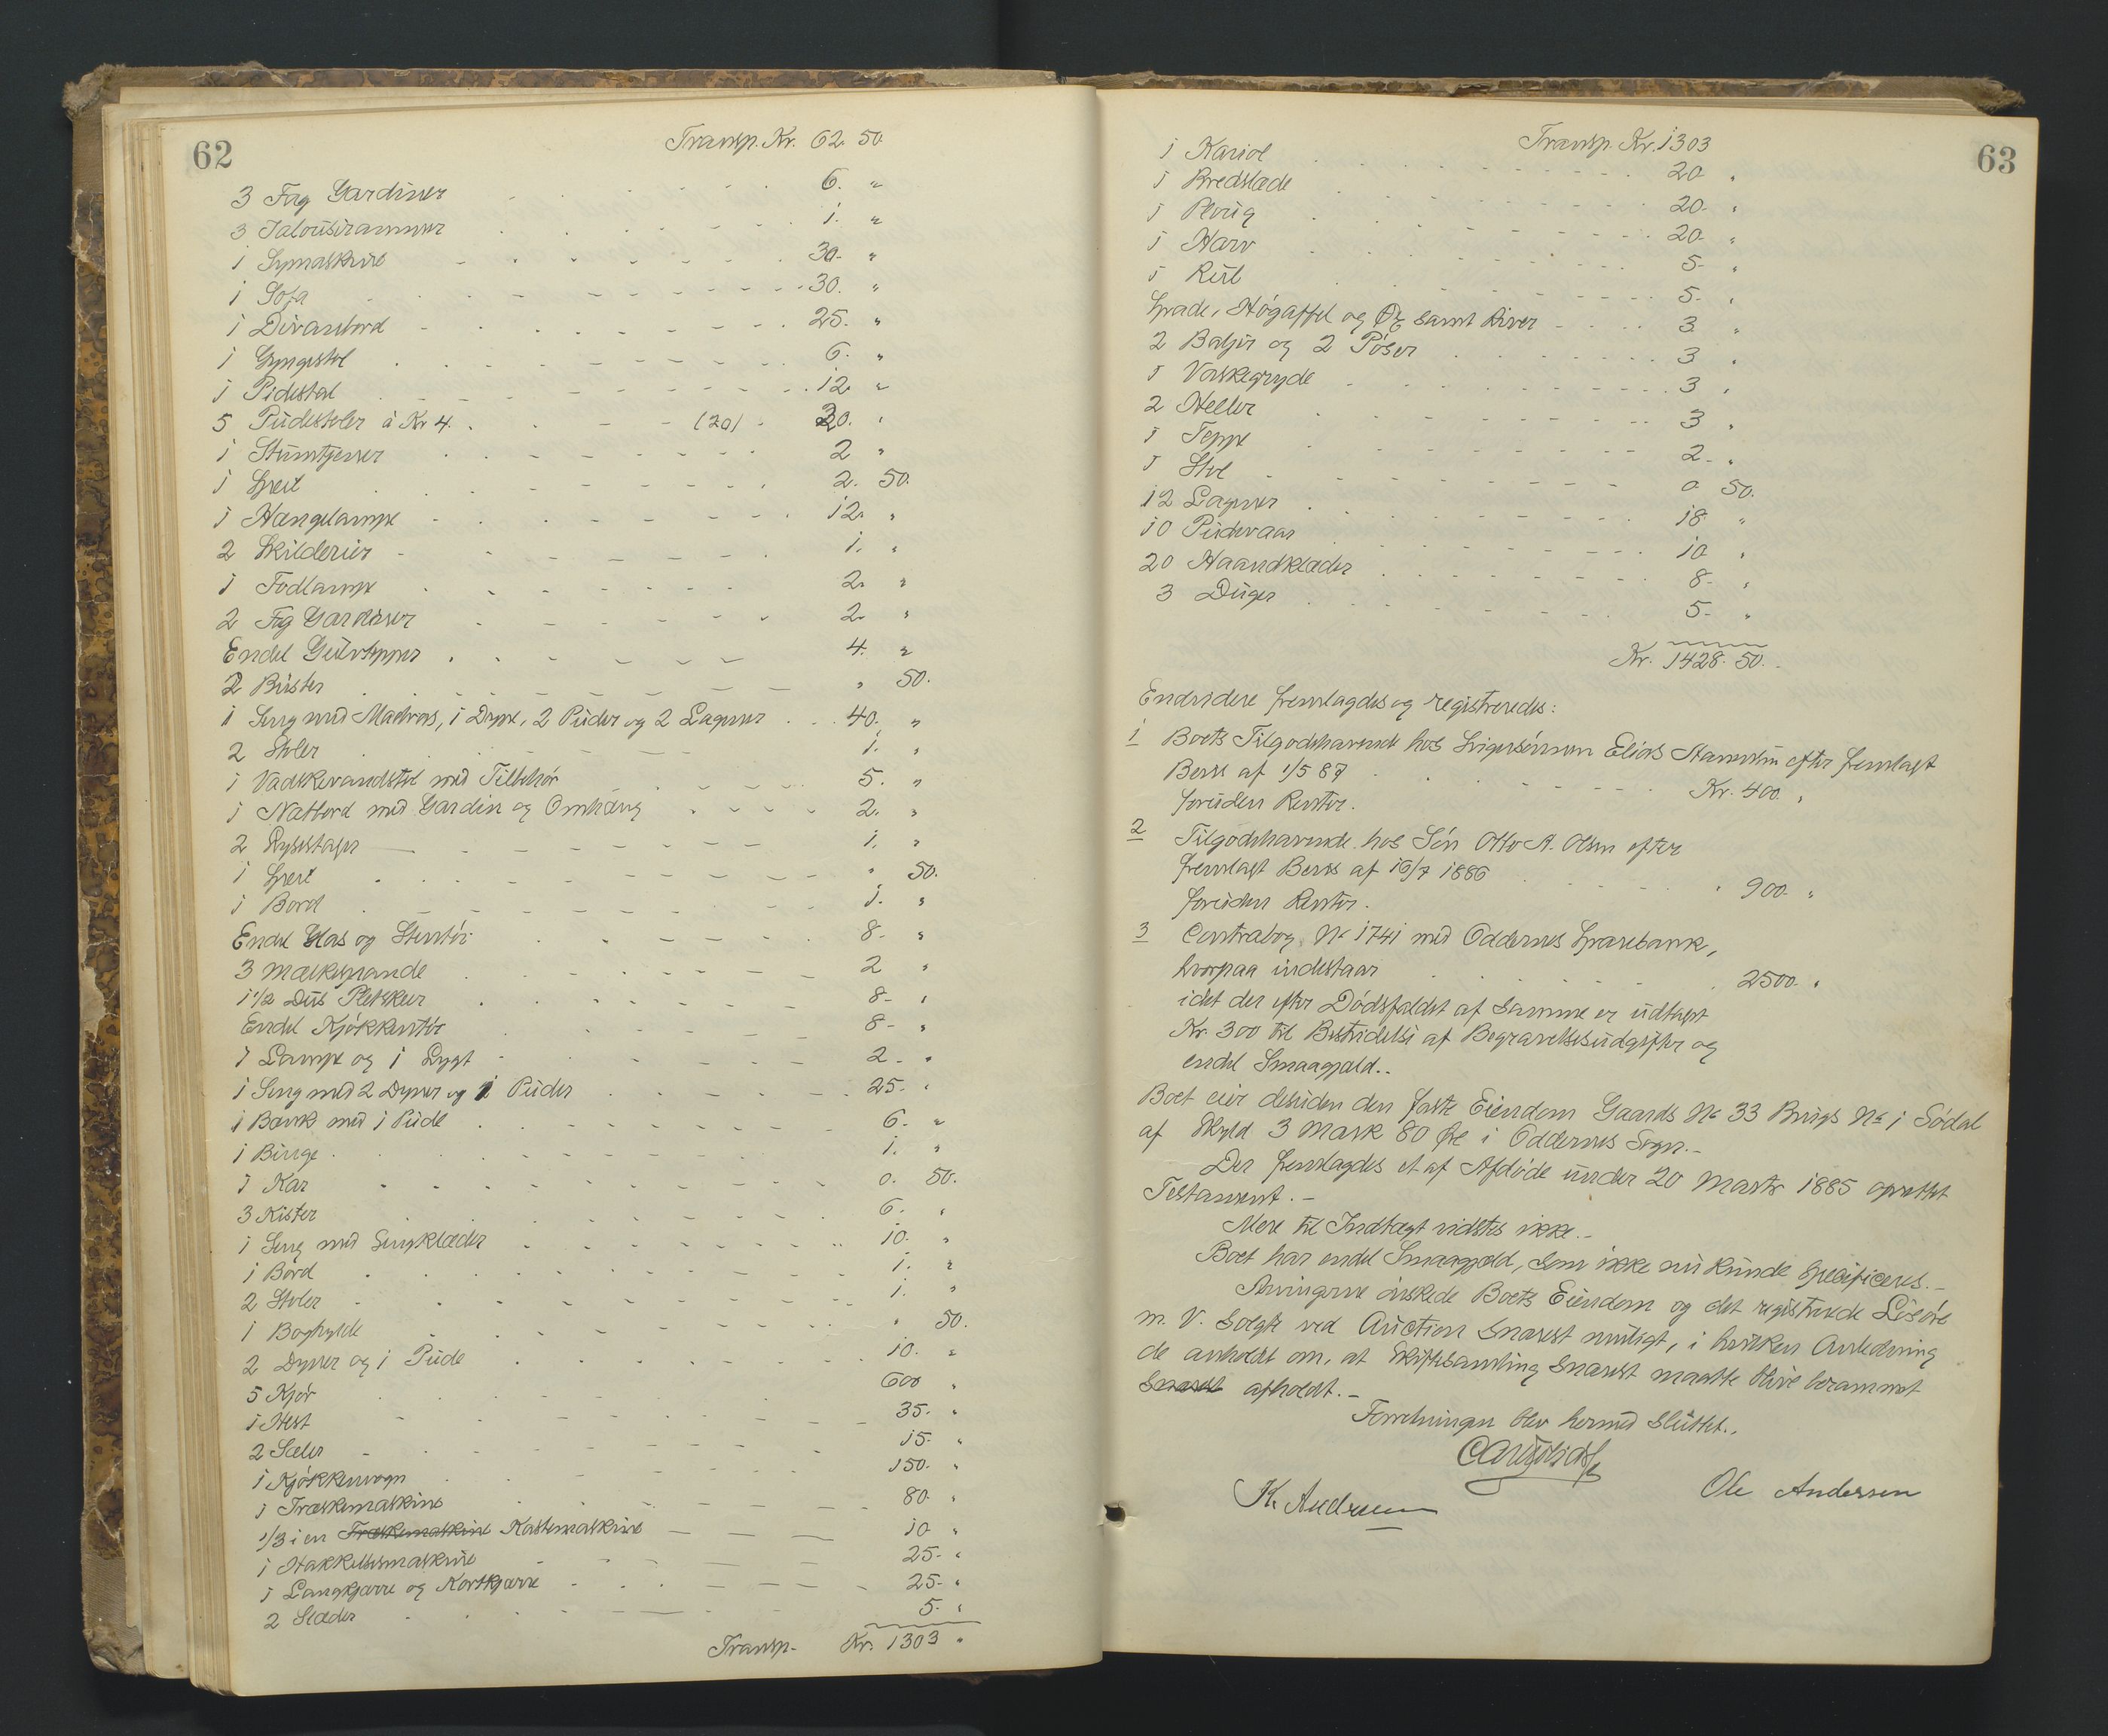 62
Transp. Kr. 62. 50.
3 Fag Gardiner 6. "
3 Jalousirammer 1. "
1 Symaskine 30. "
1 Sofa 30. "
1 Divanbord 25. "
1 Gyngestol 6. "
1 Pidestal 12. "
5 Pudestoler à Kr 4. (20) 20. "
1 Stumtjener 2 "
1 Speil 2. 50.
1 Hængelampe 12. "
2 Skilderier 1. "
1 Fodlampe 2. "
2 Fag Gardiner 2. "
Endel Gulvtepper 4. "
2 Buster " 50.
1 Seng med Madras, 1 Dyne, 2 Puder og 2 Lagener 40. "
2 Stoler 1. "
1 Vadskevandstol med Tilbehør 5. "
1 Natbord med Gardin og Omhæng 2. "
2 Lysestager 1. "
1 Speil " 50.
1 Bord 1. "
Endel Glas og Stentøi 8. "
3 Melkespande 2 "
1 1/2 Dus Pletskeer 8- "
Endel Kjøkkentøi 8- "
1 Lampe og 1 Lygt 2- "
1 Seng med 2 Dyner og 1 Puder 25- "
1 Bænk med 1 Pude 6. "
1 Binge 1. "
1 Kar 0. 50.
3 Kister 6. "
1 Seng med Sengklæder 10. "
1 Bord 1. "
2 Stoler 1. "
1 Boghylde " 50.
2 Dyner og 1 Pude 10. "
5 Kjør 600 "
1 Hest 35. "
2 Sæler 15- "
1 Kjøkkenvogn 150. "
1 Træskemaskine 80. "
1/3 i en Træskemaskine Kastemaskine 10 "
1 Hakkelsesmaskine 25- "
1 Langkjærre og Kortkjærre 25- "
2 Slæder 5- "
Transp- Kr. 1303 "
63
Transp. Kr. 1303
1 Kariol 20. "
1 Bredslæde 20. "
1 Ploug 20. "
1 Harv 5- "
1 5. "
Spade, Høgaffel og Øg samt River 3. "
2 Baljer og 2 Pøser 3 "
1 Vaskegryde 3 "
2 Heller 3 "
1 Teppe 2- "
1 Stol 0. 50.
12 Lagener 18 "
10 Pudevaar 10 "
20 Haandklæder 8- "
3 Duger 5- "
Kr. 1428. 50.
Endvidere fremlagdes og registreredes:
1 Boets Tilgodehavende hos Svigersønnen Elias efter fremlagt
Bevis af 1/5 87 Kr. 400. "
foruden Renter.
2 Tilgodehavende hos Søn Otto A. Olsen efter
fremlagt Bevis af 16/7 1886 " 900. "
foruden Renter.
3 Contrabog No 1741 med Oddernes Sparebank,
hvorpaa indestaar " 2500. "
idet der efter Dødsfaldet af samme er udtaget
Kr. 300 til Bestridelse af Begravelsesudgifter og
endel Smaagjæld..
Boet eier desuden den faste Eiendom Gaards No 33 Brugs No 1 Sødal
af Skyld 3 Mark 80 Øre i Oddernes Sogn.-
Der fremlagdes et af Afdøde under 20 Marts 1885 oprettet
Testament.-
Mere til Indtægt vidstes ikke.-
Boet har endel Smaagjæld, som ikke nu kunde specificeres.-
Arvingerne ønskede Boets Eiendom og det registrerede Løsøre
m. V. solgte ved Auction snarest muligt, i hvilken Anledning
de anholdt om, at Skiftesamling snarest maatte blive berammet
snarest afholdt.-
Forretningen blev hermed sluttet.,
K. Andersen
Ole Andersen